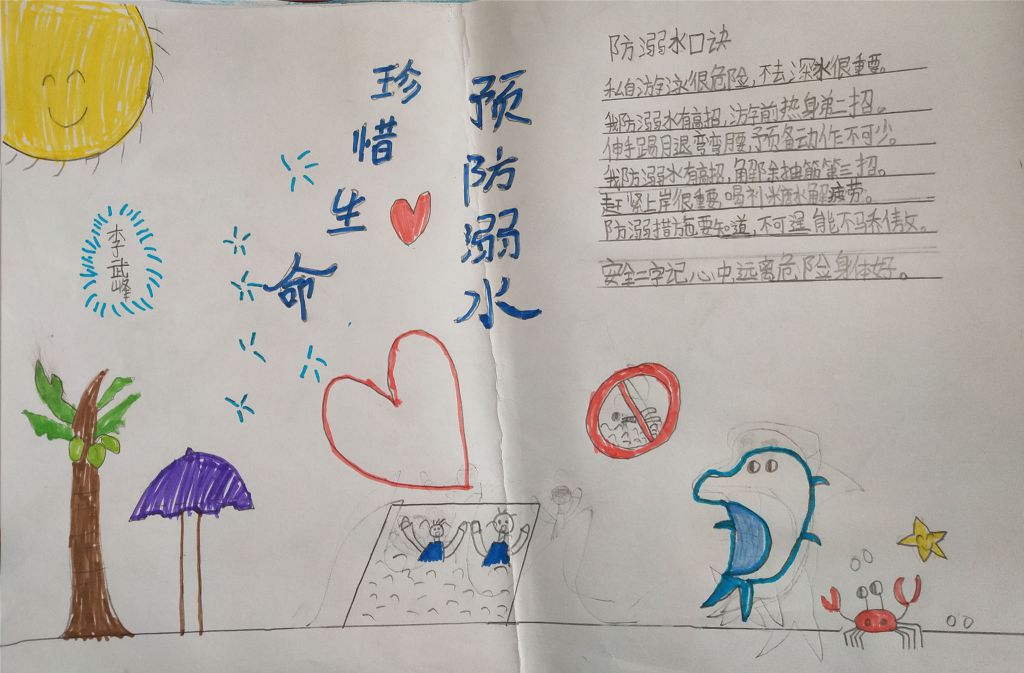 珍惜生命
预防溺水
李武峰
防溺水口诀
私自游泳很危险，不去深水很重要。
我防溺水有高招，游前热身第二招。
伸手踢月退弯弯腰，予页备动作不可少。
我防溺水有高招，解除抽筋第三招。
赶紧上岸很重要，喝补水解疲劳。
防溺措施要知道，不可逞能不
安全二字记心中，远离危险身体好。